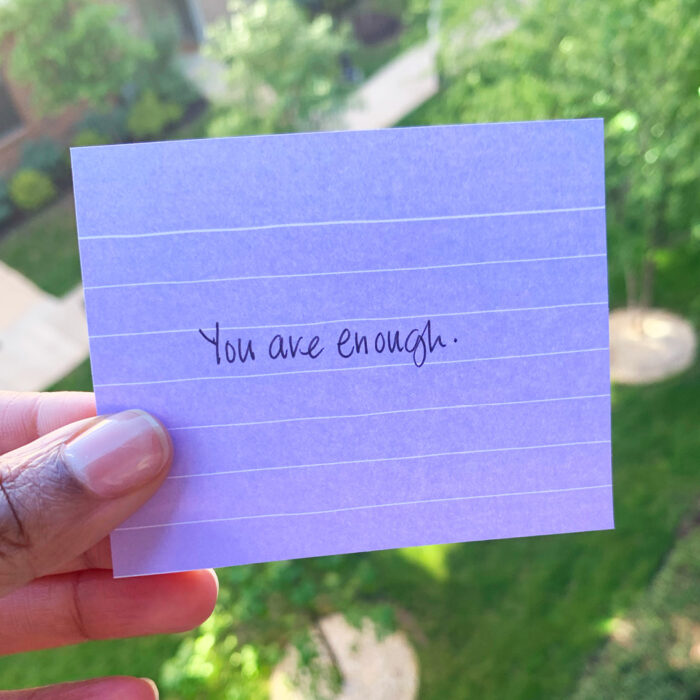 You are enough.